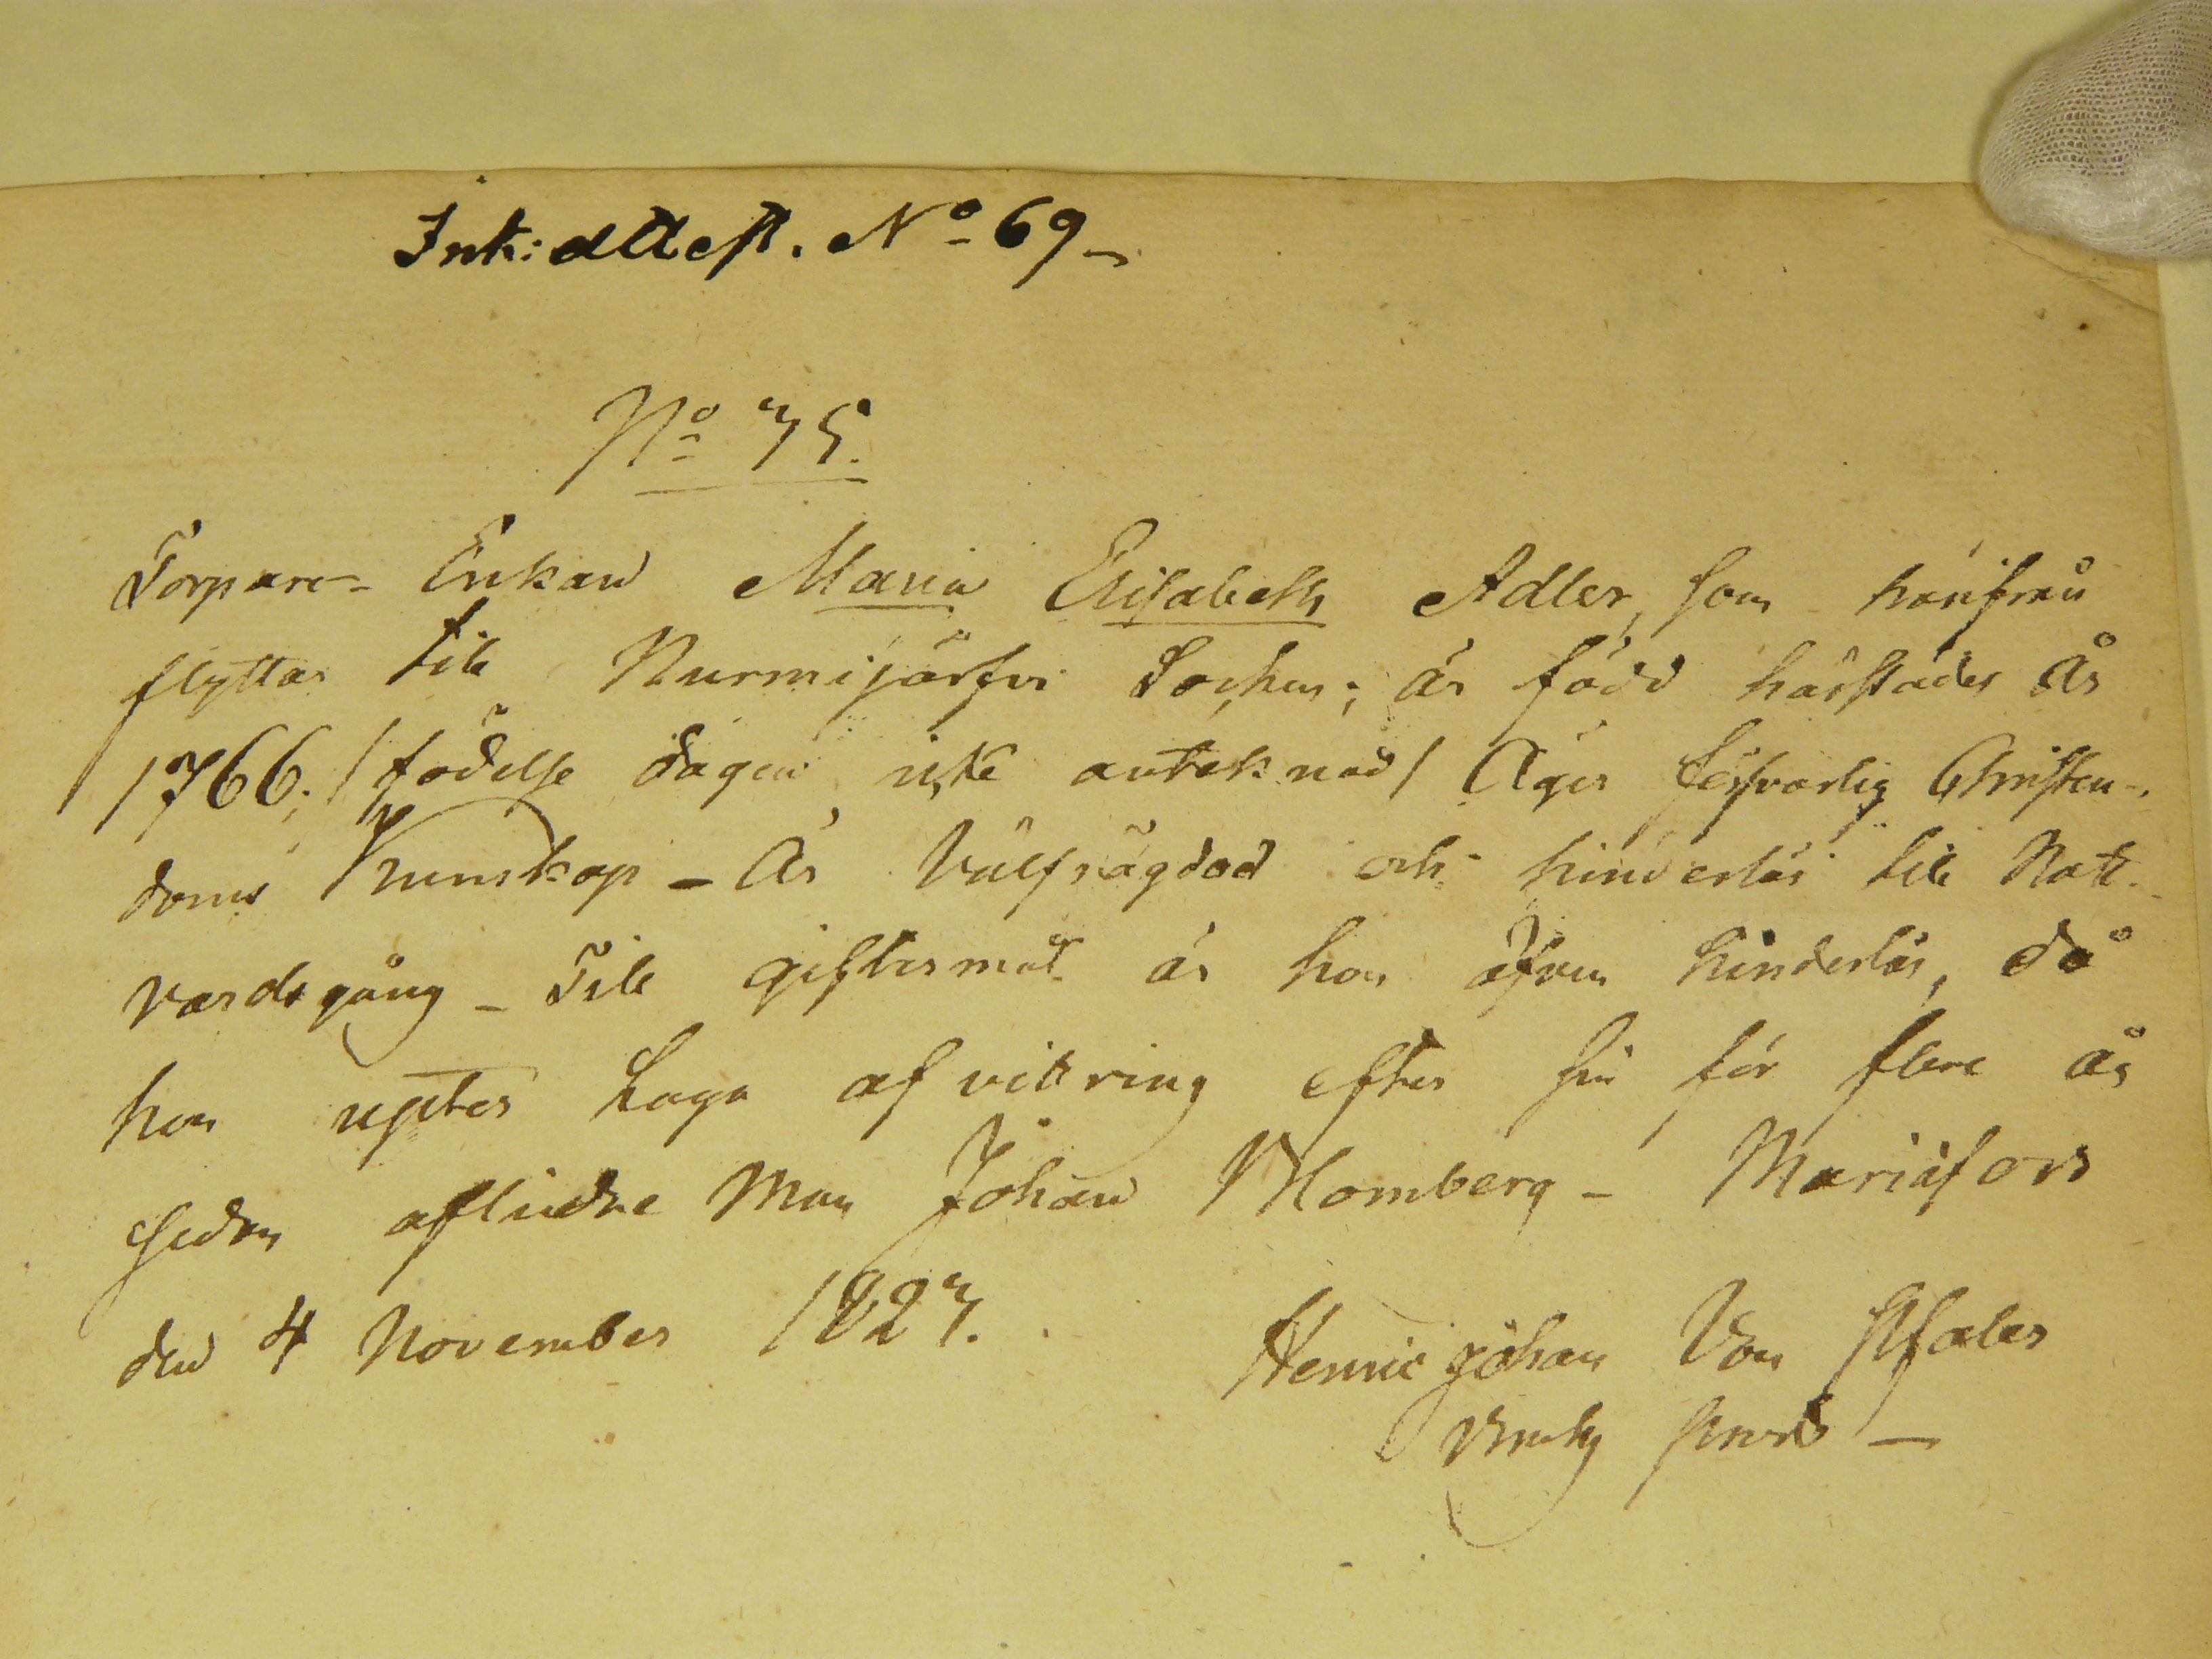 Ink: Attest. No 69_
No 75.
Torpare- Enkan Maria Elisabeth Adler, som härifrån
flyttar till Nurmijärfvi Sochn; är född härstädes År
1766; / födelse dagen icke anteknad / Äger försvarlig Christen-
doms Kunskap - Är Välfrägdad och hinderlös till Natt-
vardsgång - Till giftermål är hon äfven hinderlös, då
hon upter Laga afvittring efter sin för flere år
sedan aflidne Man Johan Blomberg - Mariæfors
den 4 November 1827.
Henric Johan Von Pfaler